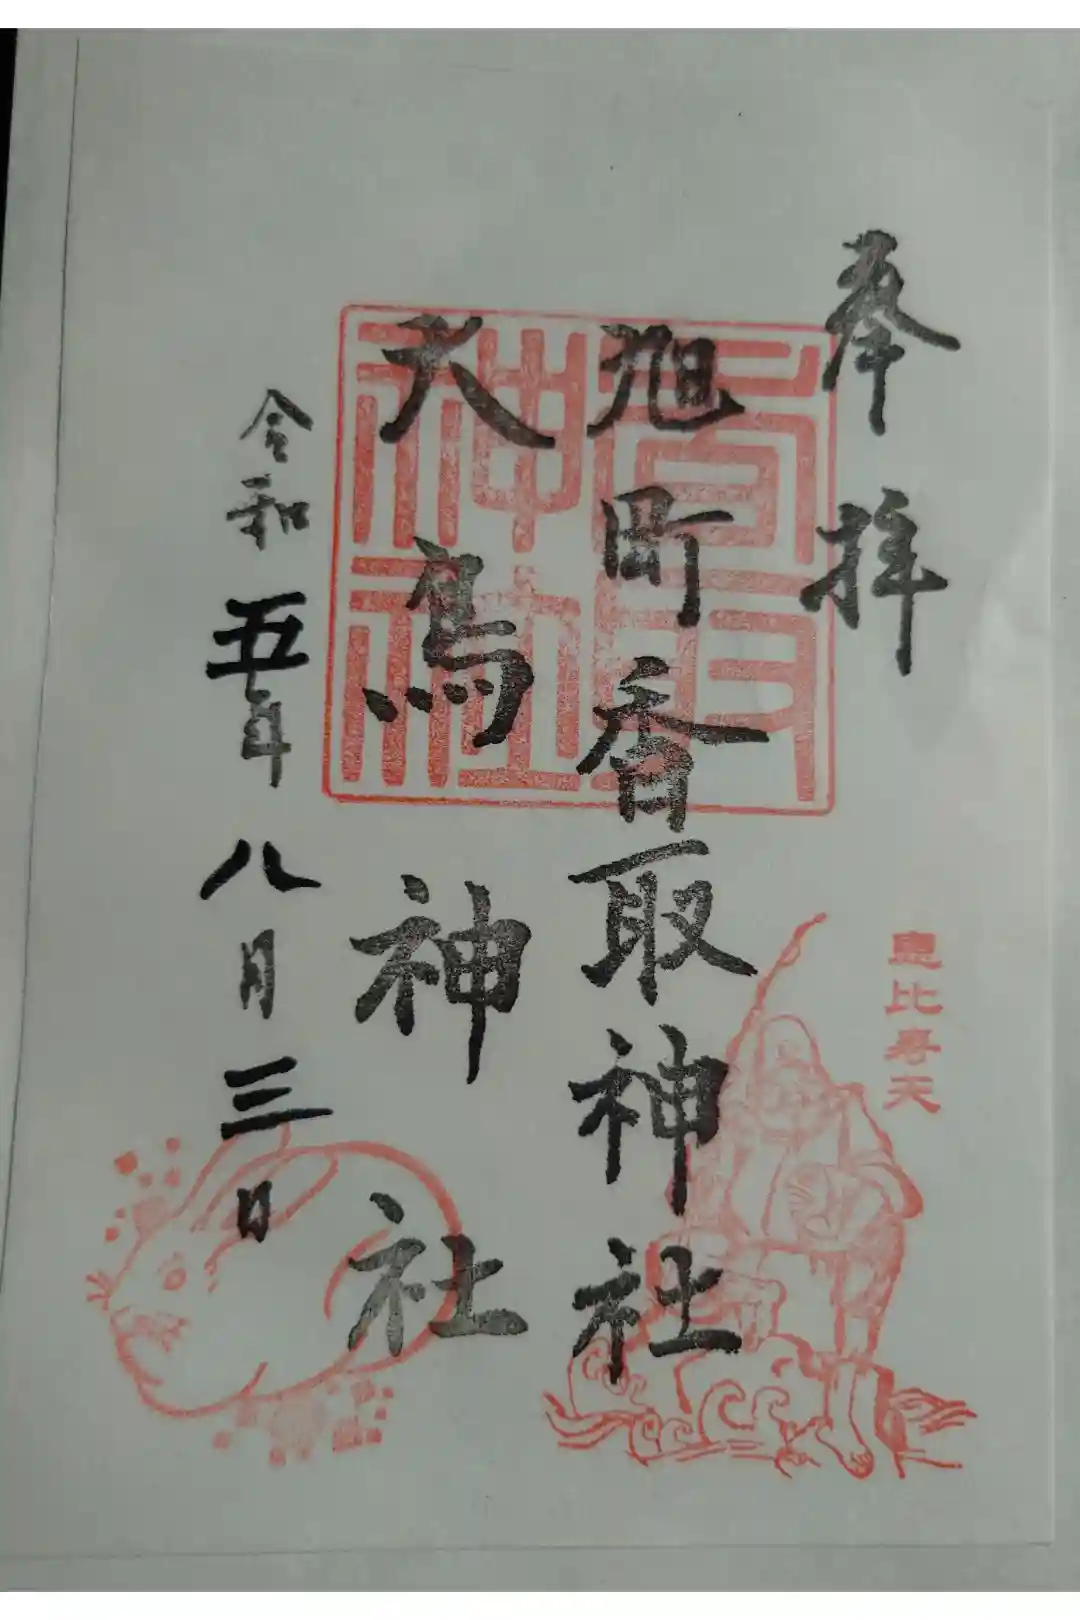 奉拝
旭町香取神社
大鳥神社
令和五年八月三日
香取
神社
恵比寿天